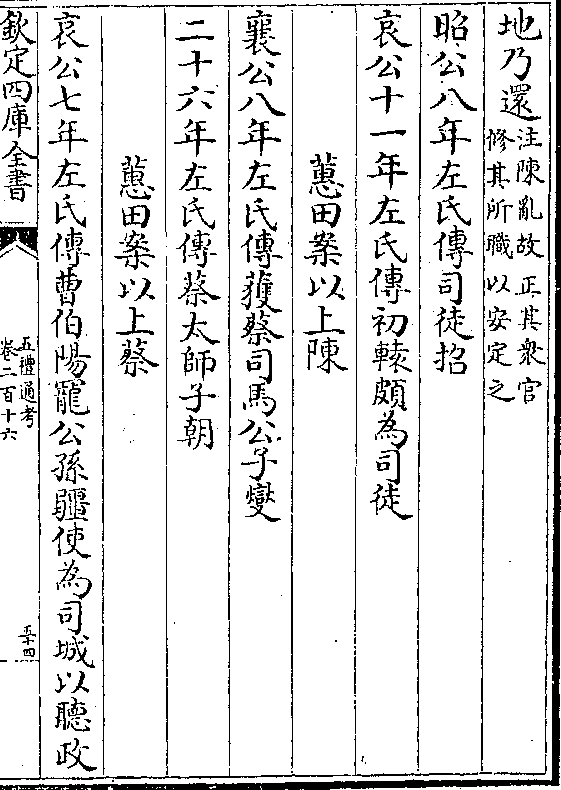 地乃還注陳亂故正其衆官
修其所職以安定之
昭公八年左氏傳司徒招
哀公十一年左氏傳初轅頗為司徒
蕙田案以上陳
襄公八年左氏傳獲蔡司馬公子燮
二十六年左氏傳蔡太師子朝
蕙田案以上蔡
哀公七年左氏傳曹伯陽寵公孫疆使為司城以聽政
欽定四庫全書
五禮通考
卷二百十六
五十四